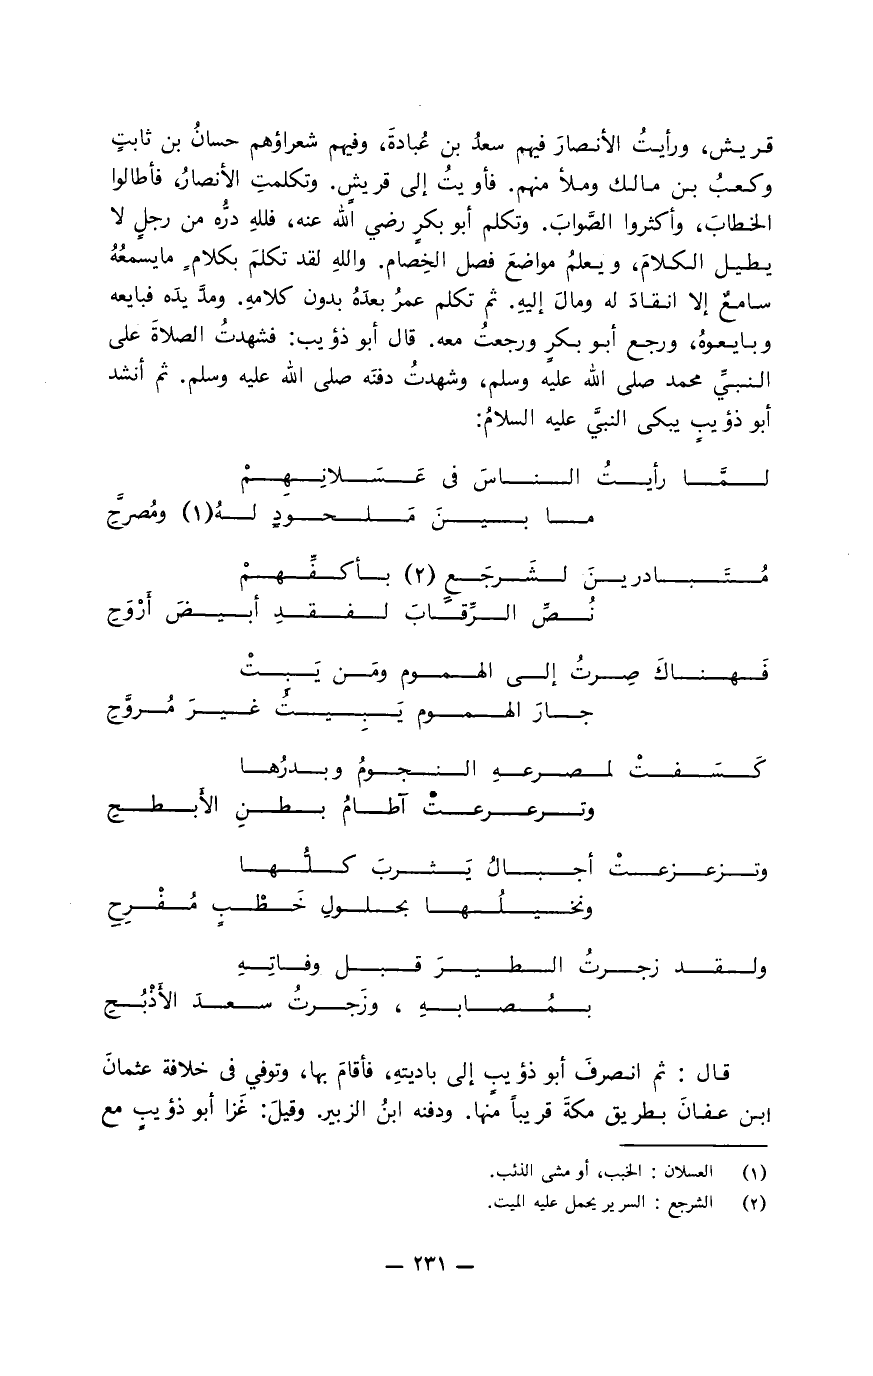 قريش، ورأيتُ الأنصارَ فيهم سعدُ بن عُبادةَ، وفيهم شعراؤهم حسانُ بن ثابتٍ
وكعبُ بن مالك وملأ منهم. فأويتُ إلى قريشٍ. وتكلمتِ الأنصارُ، فأطالوا
الخطابَ، وأكثروا الصَّوابَ. وتكلم أبو بكرٍ رضي الله عنه، فللهِ درُّه من رجلٍ لا
يطيل الكلامَ، ويعلمُ مواضعَ فصل الخِصام. واللهِ لقد تكلمَ بكلامٍ مايسمعُهُ
سامعٌ إلا انقادَ له ومالَ إليهِ. ثم تكلم عمرُ بعدَهُ بدون كلامهِ. ومدَّ يدَه فبايعه
وبايعوهُ، ورجع أبو بكرٍ ورجعتُ معه. قال أبو ذؤيب: فشهدتُ الصلاةَ على
النبيِّ محمد صلى الله عليه وسلم، وشهدتُ دفنَه صلى الله عليه وسلم. ثم أنشد
أبو ذؤيبٍ يبكى النبيَّ عليه السلامُ:
لمَّا رأيتُ الناسَ فى عَسَلانِهِمْ
ما بينَ مَلحودٍ لهُ(١) ومُضرَّجِ
مُتَبادرينَ لشَرجَعٍ (٢) بأكفِّهِمْ
نُصِّ الرِّقابَ لفقدِ أبيضَ أَرْوَحِ
فَهناكَ صِرتُ إلى الهموم ومَن يَبِتْ
جارَ الهموم يَبِيتُ غيرَ مُروَّحِ
كَسَفتْ لمصرعهِ النجومُ وبدرُها
وترعرعتْ آطامُ بطنِ الأَبطحِ
وتزعزعتْ أجبالُ يَثربَ كلُّها
ونخيلُها بحلولِ خَطْبٍ مُفْرِحِ
ولقد زجرتُ الطيرَ قبل وفاتِهِ
بمُصابهِ ، وزَجرتُ سعدَ الأَذْبُحِ
قال : ثم انصرفَ أبو ذؤيبٍ إلى باديتهِ، فأقامَ بها، وتوفي فى خلافة عثمانَ
ابن عفانَ بطريق مكةَ قريباً منها. ودفنه ابنُ الزبير. وقيلَ: غَزا أبو ذؤيبٍ مع
(١) العسلان : الخبب، أو مشى الذئب.
(٢) الشرجع : السرير يحمل عليه الميت.
— ٢٣١ —